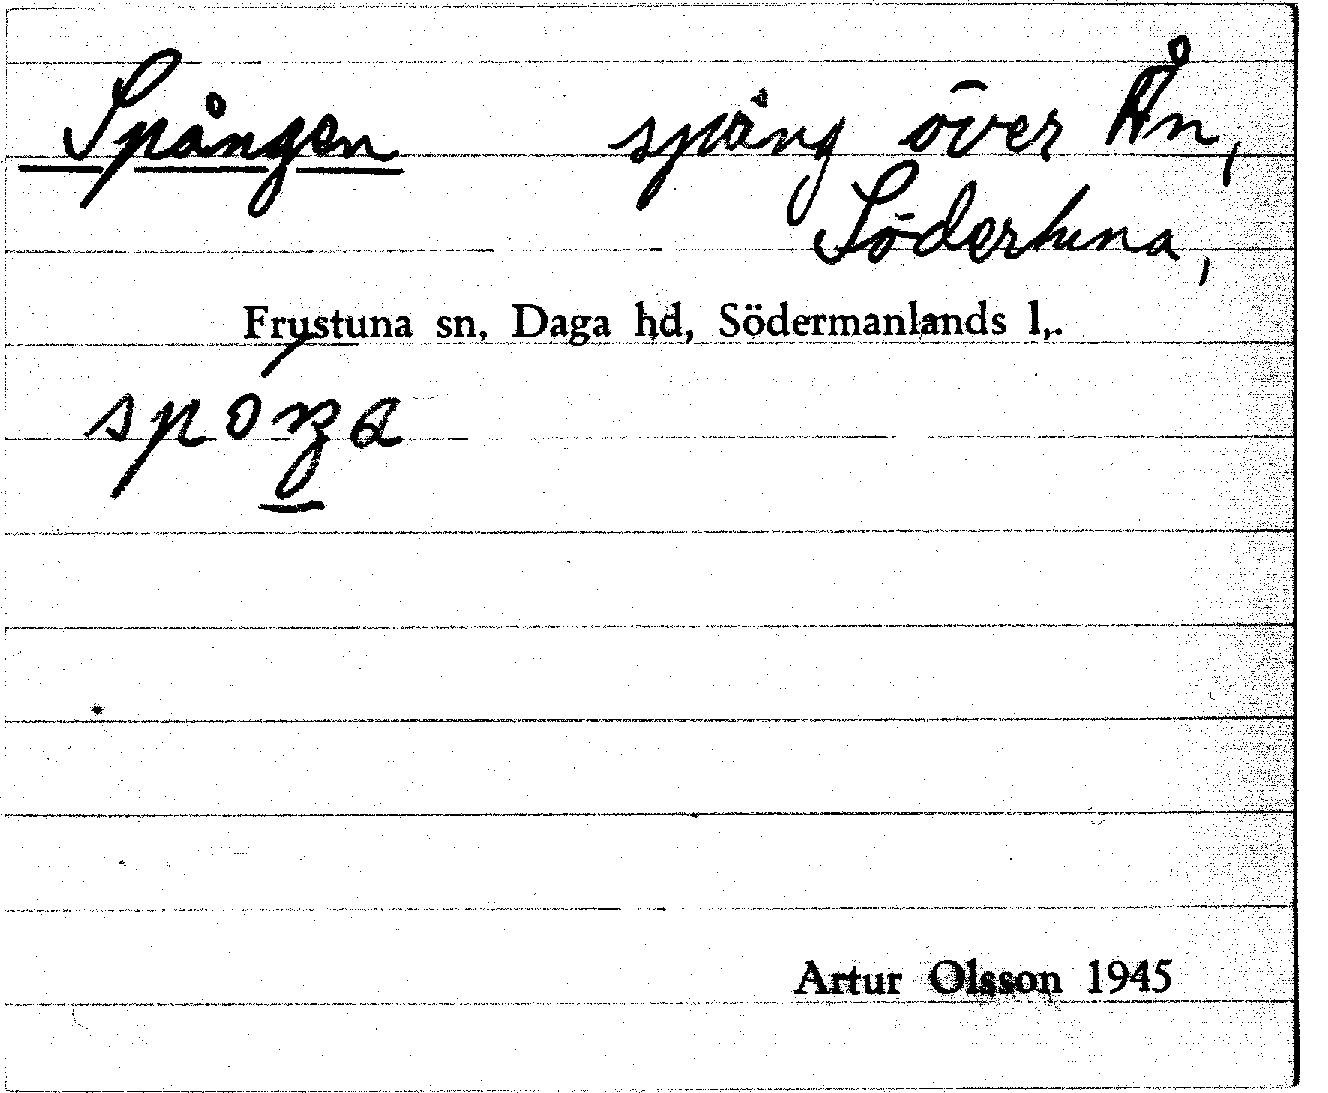 Spången spång över Ån,
Södertuna,
Frustuna sn, Daga hd, Södermanlands l.
Artur Olsson 1945